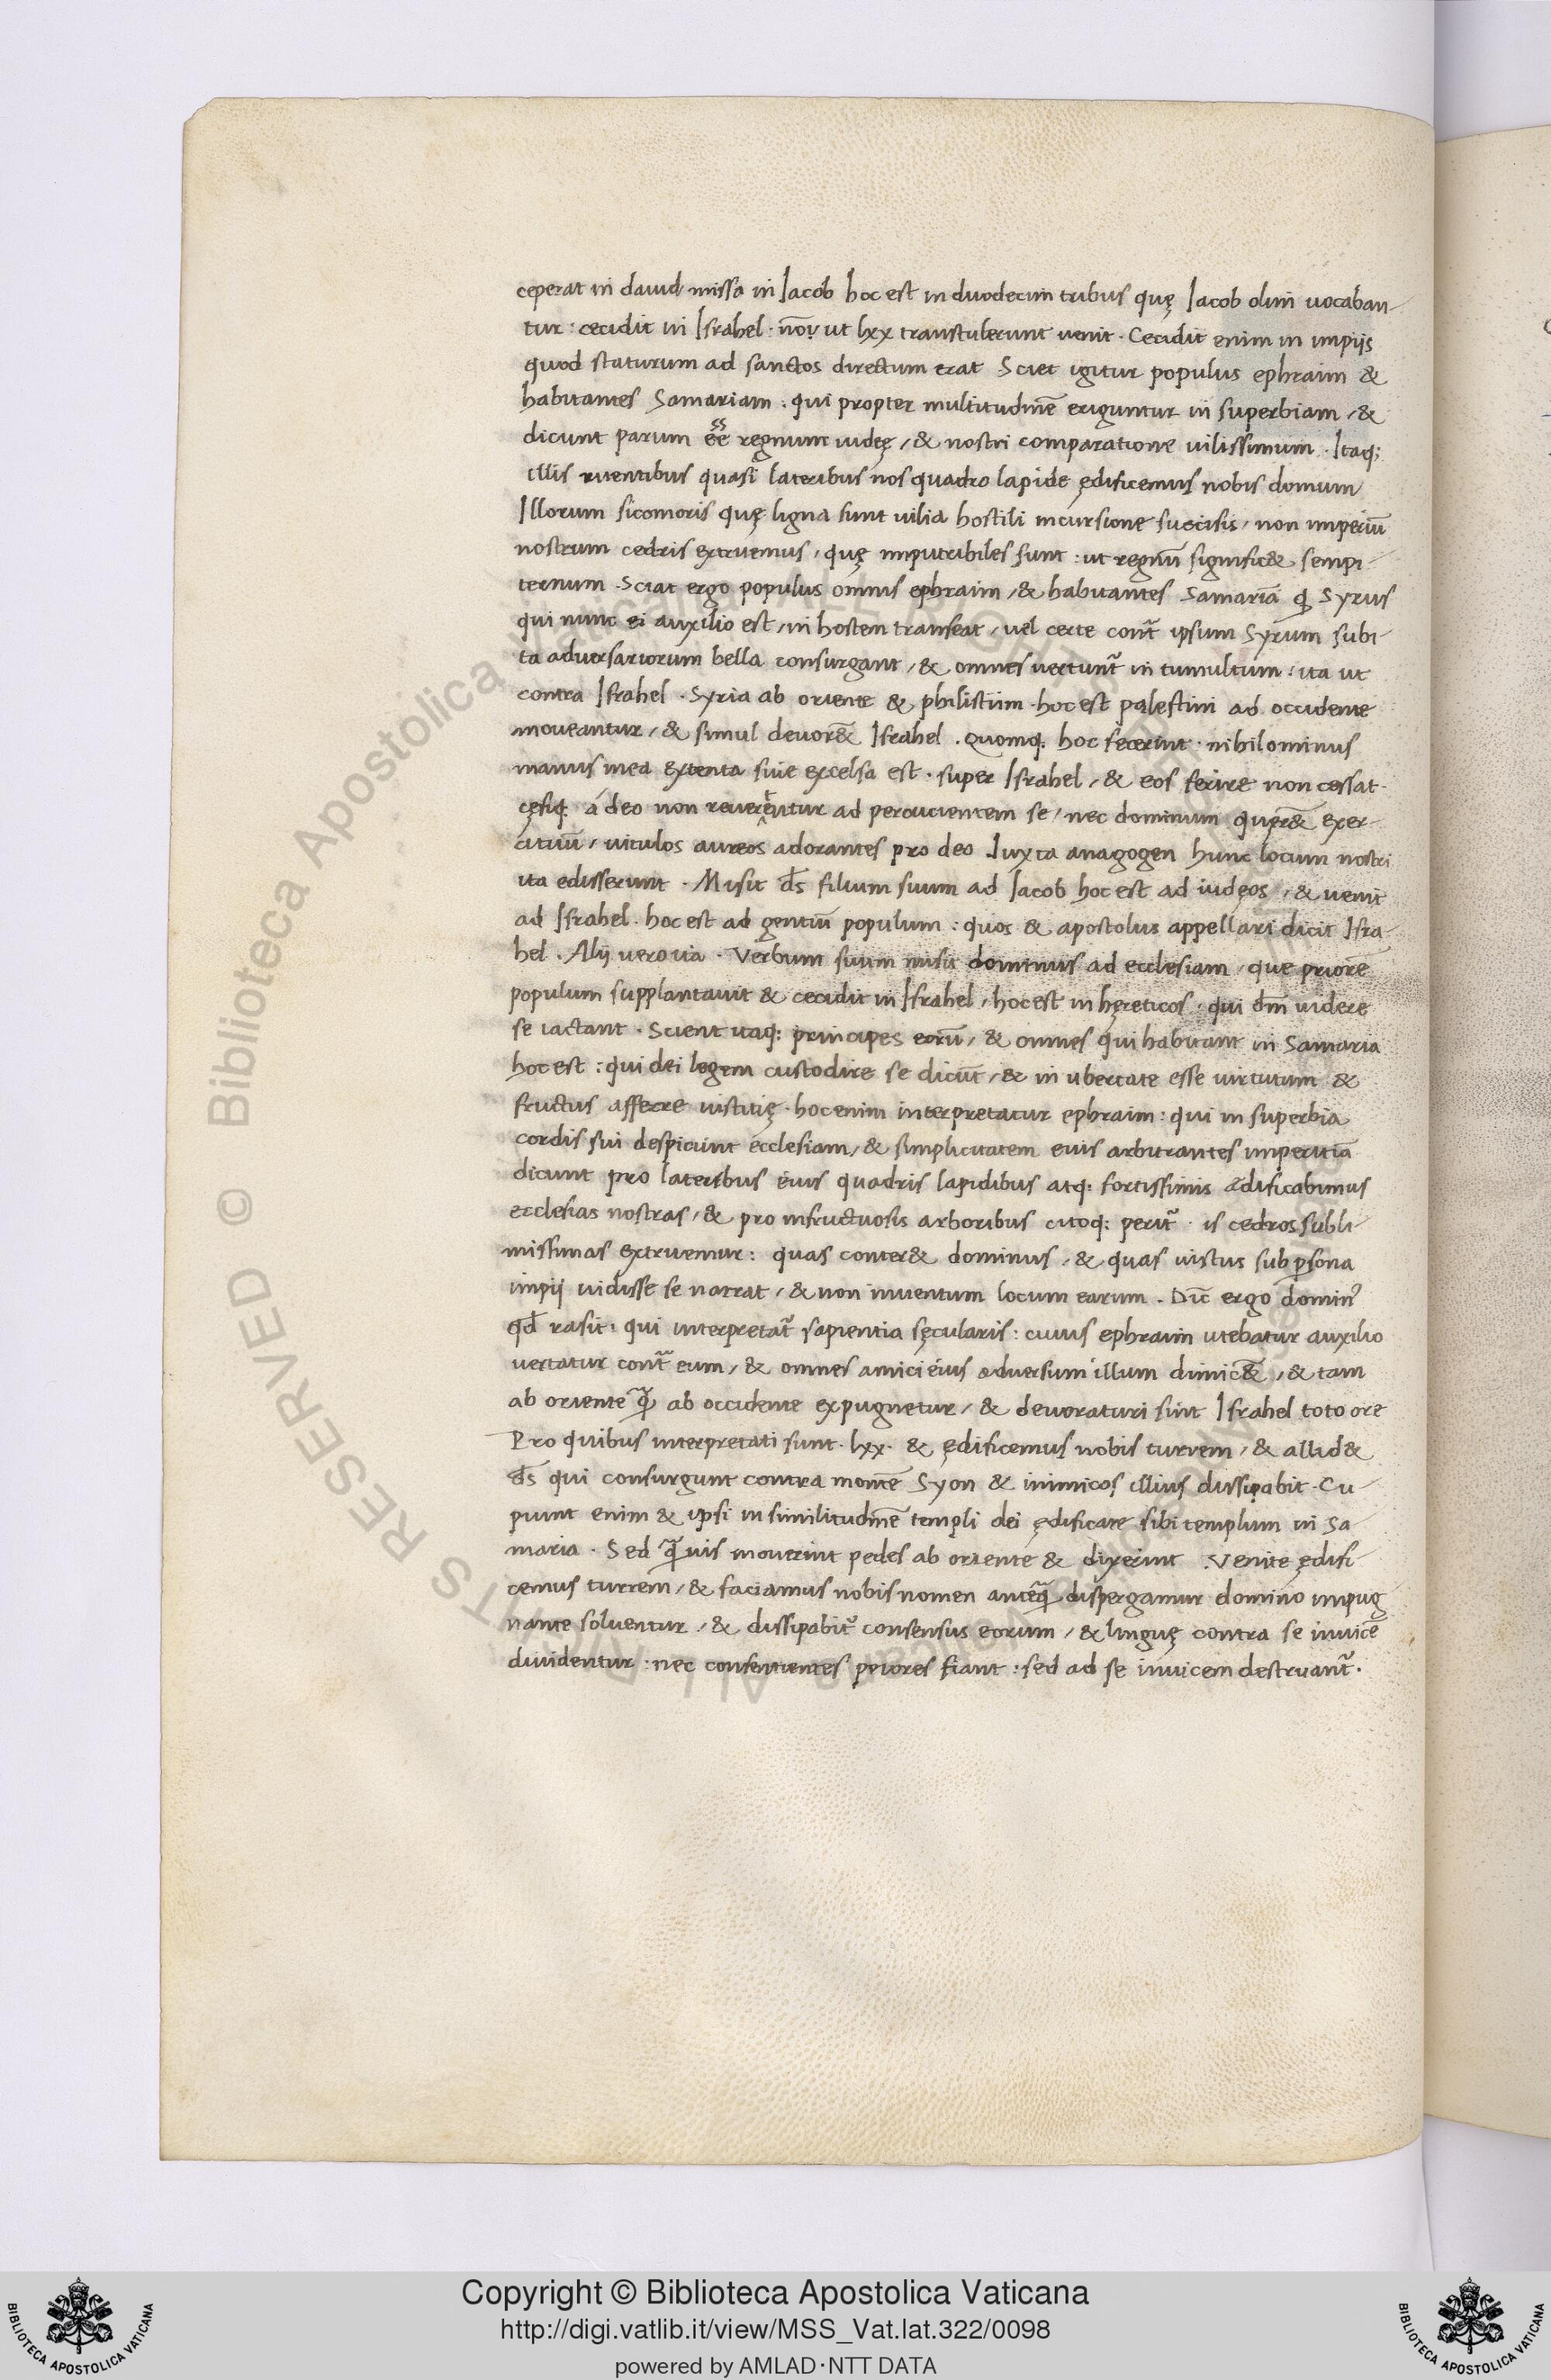 ceperat in dauid missa in Iacob hoc est in duodecim tribus quę Iacob olim uocaban-
tur : cecidit in Israhel · nō ut lxx transtulerunt uenit · Cecidit enim in impijs
quod staturum ad sanctos directum erat Sciet igitur populus ephraim &
habitantes Samariam : qui propter multitudinē eriguntur in superbiam / &
dicunt parum eē regnum iudeę / & nostri comparatione uilissimum · Itaq;
illis ruentibus quasi lateribus nos quadro lapide ędificemus nobis domum
Illorum sicomoris quę ligna sunt uilia hostili incursione succisis / non imperiū
nostrum cedris extruemus / quę imputribiles sunt : ut regnū signific& sempi-
ternum · Sciat ergo populus omnis ephraim / & habitantes Samariā ꝙ Syrus
qui nunc ei auxilio est / in hostem transeat / uel certe cont̃ ipsum Syrum subi-
ta aduersariorum bella consurgant / & omnes uertunt̃ in tumultum : ita ut
contra Israhel · Syria ab oriente & philistiim · hoc est palestini ad occidente
moueantur / & simul deuor&̃ Israhel . Quomq; hoc fecerint · nihilominus
manus mea extenta siue excelsa est · super Israhel / & eos ferire non cessat ·
cęsiq; a deo non reuerentur ad percucientem se / nec dominum quer&̃ exer-
cituū / uitulos aureos adorantes pro deo Iuxta anagogen hunc locum nostri
ita edisserunt · Misit d̄s filium suum ad Iacob hoc est ad iudęos / & uenit
ad Israhel · hoc est ad gentiū populum : quos & apostolus appellari dicit Isra-
hel · Alij uero ita · Verbum suum misit dominus ad ecclesiam / que priorē
populum supplantauit & cecidit in Israhel / hoc est in hęreticos · qui dm̄ uidere
se iactant · Scient itaq; principes eorū / & omnes qui habitant in Samaria
hoc est : qui dei legem custodire se dicūt / & in ubertate esse uirtutum &
fructus afferre iustitię · hoc enim interpretatur ephraim : qui in superbia
cordis sui despiciunt ecclesiam / & simplicitatem eius arbitrantes imperitiā
dicunt pro lateribus eius quadris lapidibus atq; fortissimis ædificabimus
ecclesias nostras / & pro infructuosis arboribus citoq; perit̃ · is cedros subli-
missimas extruemur : quas conter& dominus / & quas iustus sub ꝑsona
impij uidisse se narrat / & non inuentum locum earum . Dic̄ ergo domin᾽
qd̄ rasit · qui interpretat̃ sapientia sęcularis : cuius ephraim utebatur auxilio
uertatur cont̃ eum / & omnes amici eius aduersum illum dimic&̃ / & tam
ab oriente q̃ ab occidente expugnetur / & deuoraturi sint Israhel toto ore
Pro quibus interpretati sunt · lxx · & ędificemus nobis turrem / & allid&
d̄s qui consurgunt contra montē Syon & inimicos illius dissipabit · Cu-
piunt enim & ipsi in similitudinē templi dei ędificare sibi templum in Sa
maria · Sed q̃uis mouerint pedes ab oriente & dixerint . Venite ędifi-
cemus turrem / & faciamus nobis nomen anteq̃ dispergamur domino impug
nante soluentur / & dissipabit̃ consensus eorum / & linguę contra se inuicē
diuidentur : nec consentientes priores fiant : sed ad se inuicem destruant̃ ·
© Biblioteca Apostolica Vaticana ALL RIGHTS RESERVED
BIBLIOTECA APOSTOLICA VATICANA
Copyright © Biblioteca Apostolica Vaticana
http://digi.vatlib.it/view/MSS_Vat.lat.322/0098
powered by AMLAD·NTT DATA
BIBLIOTECA APOSTOLICA VATICANA